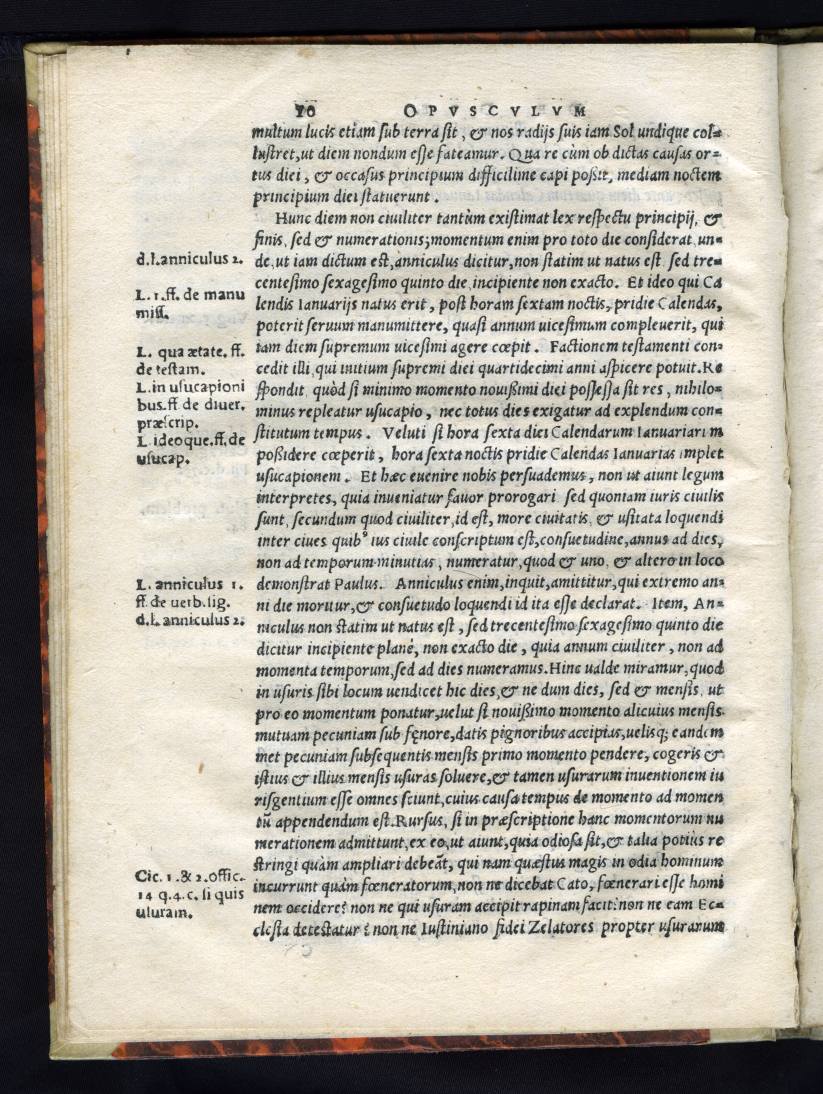 70 OPVSCVLVM
multum lucis etiam sub terra sit, & nos radijs suis iam Sol undique col=
lustret, ut diem nondum esse fateamur. Qua re cùm ob dictas causas or=
tus diei, & occasus principium difficilime capi poßit, mediam noctem
principium diei statuerunt.
Hunc diem non ciuiliter tantùm existimat lex respectu principij, &
finis, sed & numerationis; momentum enim pro toto die considerat, un=
d.l.anniculus 2.
de, ut iam dictum est, anniculus dicitur, non statim ut natus est sed tre=
centesimo sexagesimo quinto die incipiente non exacto. Et ideo qui Ca
L. 1.ff. de manu
miss.
lendis Ianuarijs natus erit, post horam sextam noctis, pridie Calendas,
poterit seruum manumittere, quasi annum uicesimum compleuerit, qui
L. qua ætate. ff.
de testam.
iam diem supremum uicesimi agere cœpit. Factionem testamenti con=
cedit illi, qui initium supremi diei quartidecimi anni aspicere potuit. Re
L. in usucapioni
bus.ff de diuer.
præscrip.
spondit quòd si minimo momento nouißimi diei possessa sit res, nihilo=
minus repleatur usucapio, nec totus dies exigatur ad explendum con=
L. ideoque.ff.de
usucap.
stitutum tempus. Veluti si hora sexta diei Calendarum Ianuariarum
poßidere cœperit, hora sexta noctis pridie Calendas Ianuarias implet
usucapionem. Et hæc euenire nobis persuademus, non ut aiunt legum
interpretes, quia inueniatur fauor prorogari sed quoniam iuris ciuilis
sunt, secundum quod ciuiliter, id est, more ciuitatis, & usitata loquendi
inter ciues quibꝰ ius ciuile conscriptum est, consuetudine, annus ad dies,
non ad temporum minutias, numeratur, quod & uno, & altero in loco
L. anniculus 1.
ff.de uerb.sig.
demonstrat Paulus. Anniculus enim, inquit, amittitur, qui extremo an=
ni die moritur, & consuetudo loquendi id ita esse declarat. Item, An=
d.l. anniculus 2.
niculus non statim ut natus est, sed trecentesimo sexagesimo quinto die
dicitur incipiente planè, non exacto die, quia annum ciuiliter, non ad
momenta temporum, sed ad dies numeramus. Hinc ualde miramur, quod
in usuris sibi locum uendicet hic dies, & ne dum dies, sed & mensis, ut
pro eo momentum ponatur, uelut si nouißimo momento alicuius mensis
mutuam pecuniam sub fęnore, datis pignoribus accipias, uelisq; eandem
met pecuniam subsequentis mensis primo momento pendere, cogeris &
istius & illius mensis usuras soluere, & tamen usurarum inuentionem iu
risgentium esse omnes sciunt, cuius causa tempus de momento ad momen
tū appendendum est. Rursus, si in præscriptione hanc momentorum nu
merationem admittunt, ex eo, ut aiunt, quia odiosa sit, & talia potius re
stringi quàm ampliari debeāt, qui nam quæstus magis in odia hominum
Cic. 1. & 2.offic.
14 q.4.c. si quis
usuram.
incurrunt quàm fœneratorum, non ne dicebat Cato, fœnerari esse homi
nem occidere? non ne qui usuram accipit rapinam facit? non ne eam Ec=
clesia detestatur? non ne Iustiniano fidei Zelatores propter usurarum